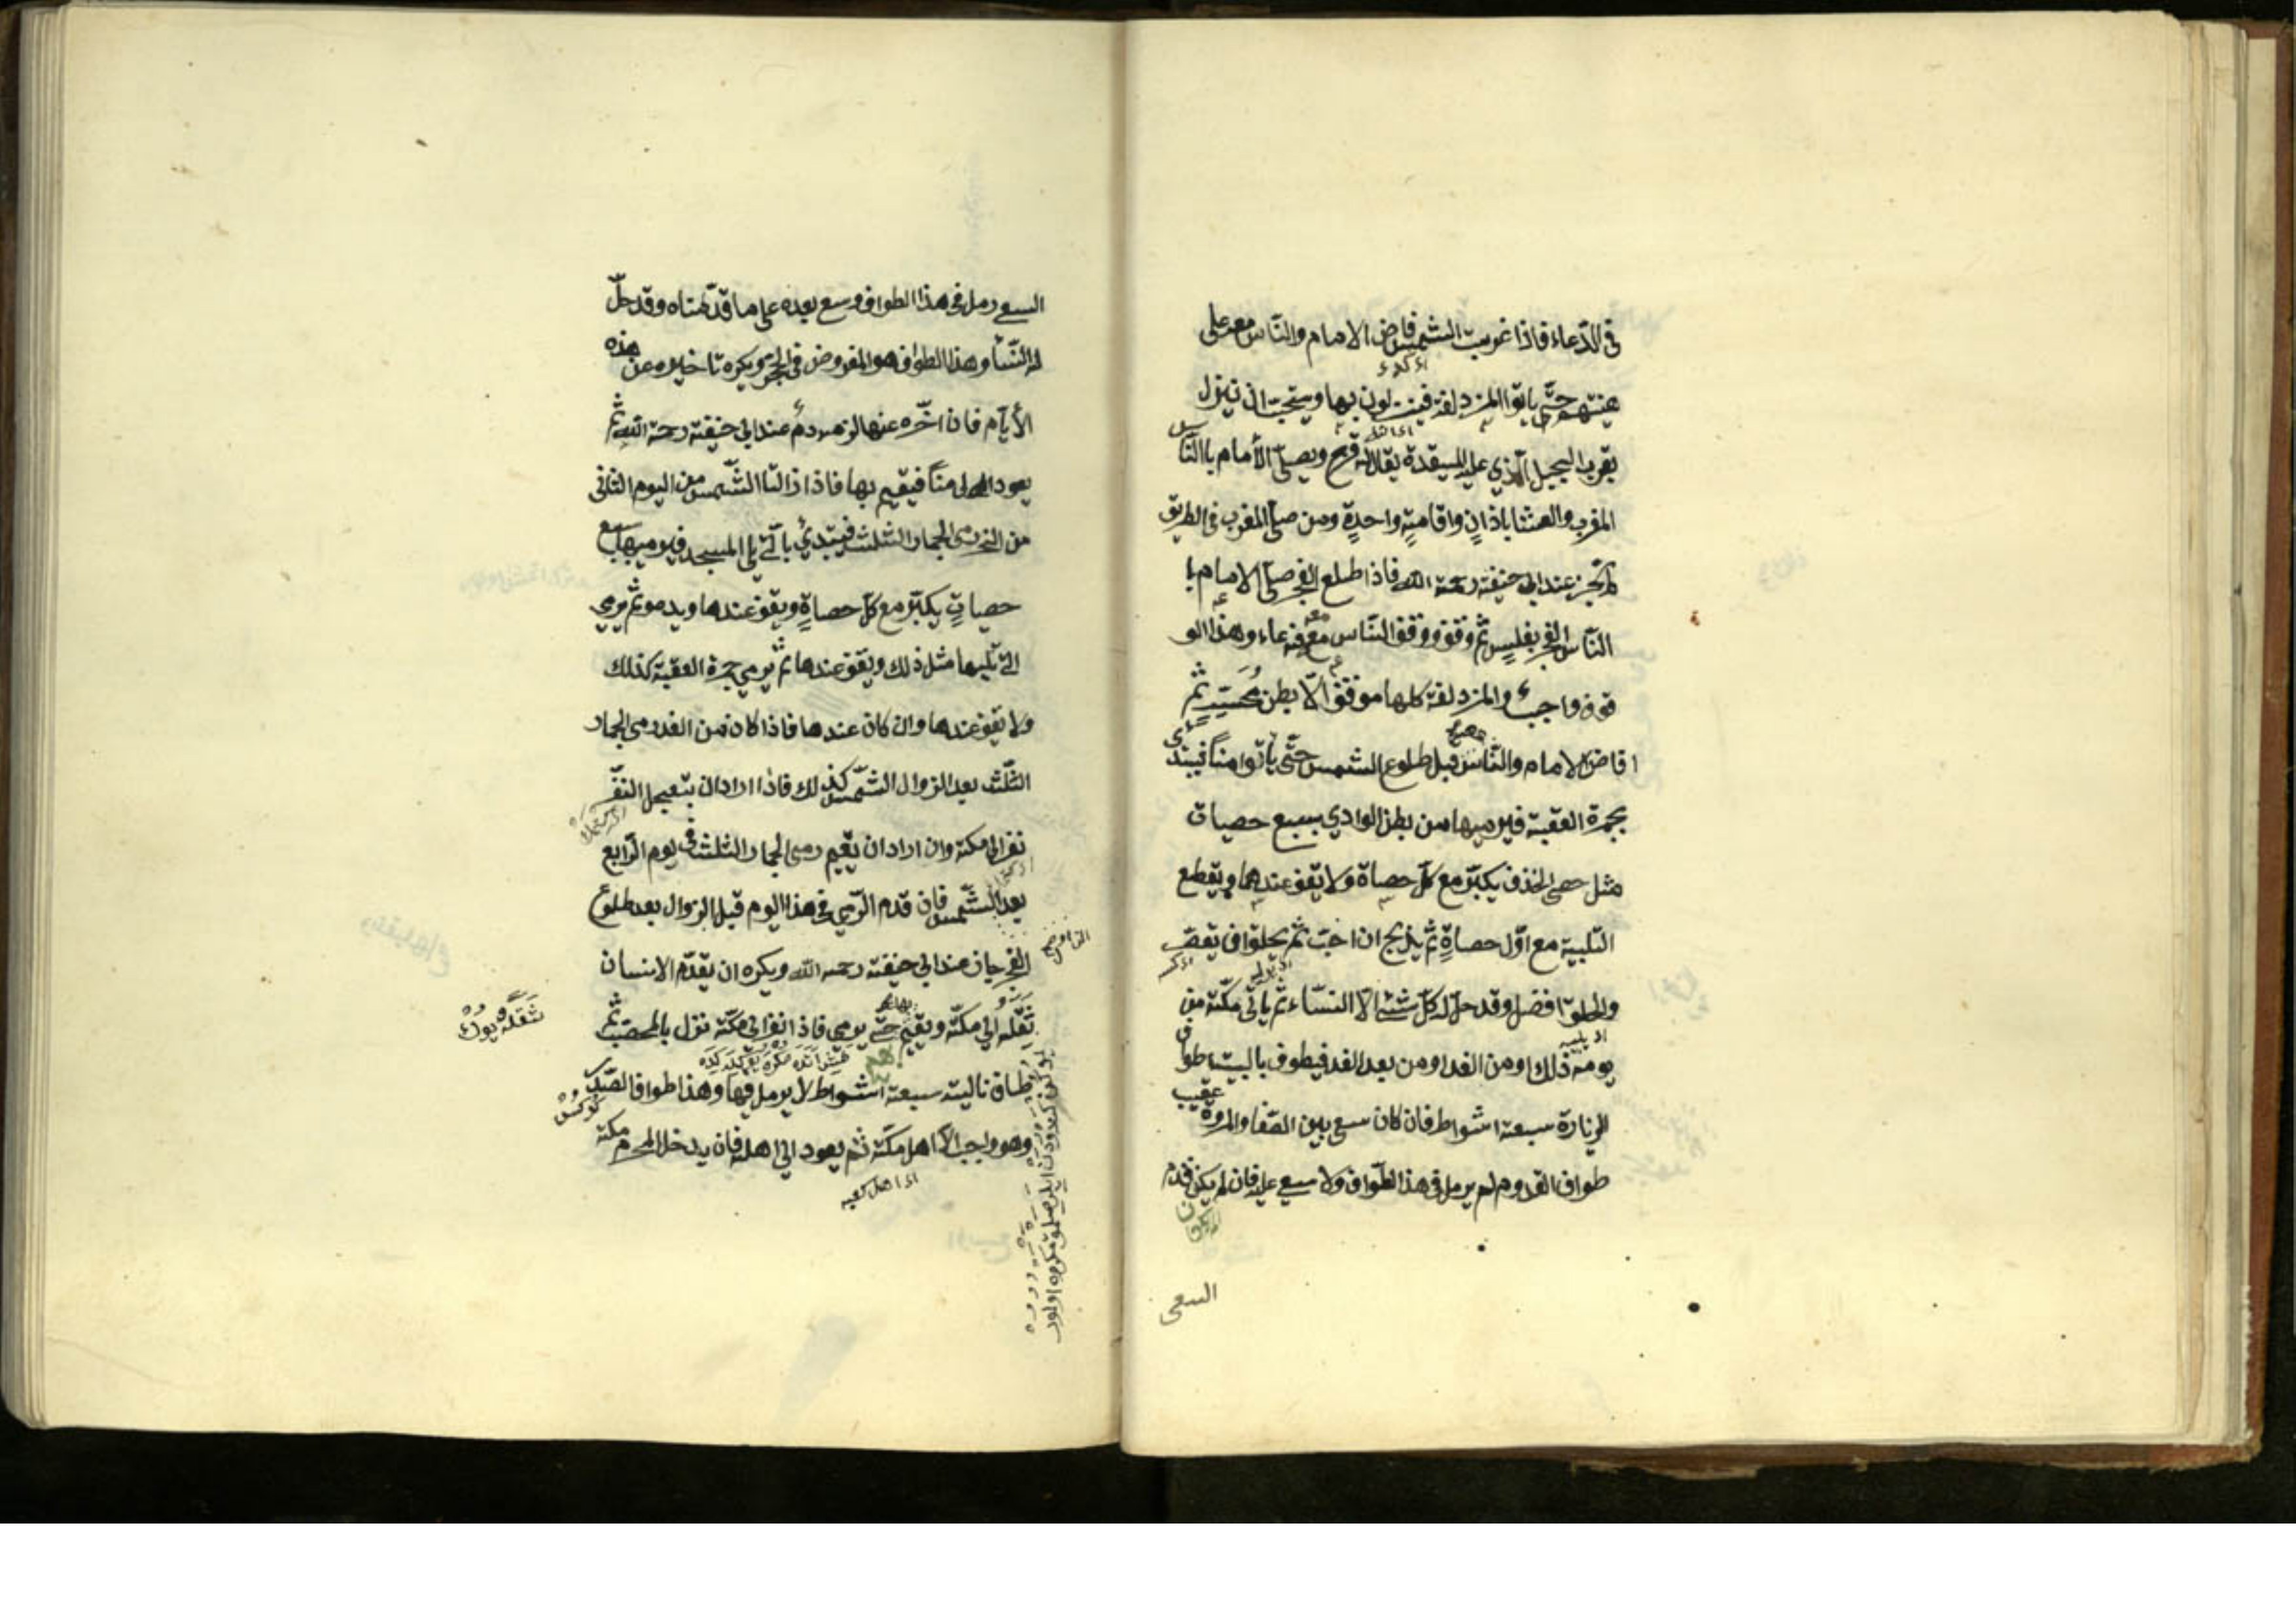 في الدّعاء فاذا غربت الشمس فاض الامام والنّاس معه على
هينتهم حتّى ياتوا المزدلفة فينزلون بها ويستحبّ ان ينزل
بقرب الجبل الّذي عليه الميقدة يقال له قزح ويصلّي الأمام باالنّاس
المغرب والعشا باذانٍ واقامةٍ واحدةٍ ومن صلّى المغرب في الطريق
لم تجز عند ابي حنيفة رحمة الله فاذا طلع الفجر صلّى الامام با
النّاس الفجر بغلسٍ ثمّ وقف ووقف النّاس معه فدعاء وهذا الو
قوف واجبٌ والمزدلفة كلها موقف الّا بطن مُحَسّرٍ ثمّ
افاض الامام والنّاس قبل طلوع الشمس حتّى يأتوا مناً فيبتدى
بجمرة العقبة فيرميها من بطن الوادي بسبع حصيات
مثل حصى الخذف يكبّر مع كلّ حصاة ولا يقف عندها ويقطع
التّلبية مع اوّل حصاةٍ ثمّ يذبح ان احبّ ثمّ يحلق او يقصّر
والحلق افضل وقد حلّ له كلّ شئ الّا النسّاء ثمّ ياتي مكّة من
يومه ذلك او من الغد او من بعد الغد فيطوف بالبيت طواف
الزيارة سبعة اشواط فان كان سعى بين الصّفا والمروة عقيب
طواف القدوم لم يرمل في هذا الطّواف ولا سعي عليه فان لم يكن قدم
السعى
السعي رمل في هذا الطواف وسعى بعده على ما قدّمناه وقد حلّ
له النّسأ وهذا الطواف هو المفروض في الحجّ ويكره تاخيره عن هذه
الأيّام فان اخّره عنها لزمه دمٌ عند ابي حنيفة رحمة الله ثمّ
يعود الى مناً فيقيم بها فاذا زالت الشّمس من اليوم الثاني
من النحر رمى الجمار الثلث فيبتدئ بالّتي يلي المسجد فيرميها بسبع
حصياتٍ يكبّر مع كلّ حصاةٍ ويقف عندها ويدعو ثمّ يرمي
الّتي تليها مثل ذلك ويقف عندها ثمّ يرمي جمرة العقبة كذلك
ولا يقف عندها وان كان عندها فاذا كان من الغد رمى الجمار
الثلّث بعد الزوال الشّمس كذلك فاذا اراد ان يتعجل النفر
نفر الى مكة وان اراد ان يقيم رمى الجمار الثلث في يوم الرّابع
بعد الشّمس فان قدم الرّمي في هذا اليوم قبل الزوال بعد طلوع
الفجر جاز عند ابي حنيفة رحمه الله ويكره ان يقدّم الانسان
ثقله الي مكّة ويقيم حتّى يرمي فاذا نفر الى مكّة نزل بالمحصّب ثمّ
ثقله يوك
طاف بالبيت سبعة اشواط لا يرمل فيها وهذا طواف الصّدر
وهو واجب الّا اهل مكّة ثم يعود الي اهله فان يدخل المحرم مكة